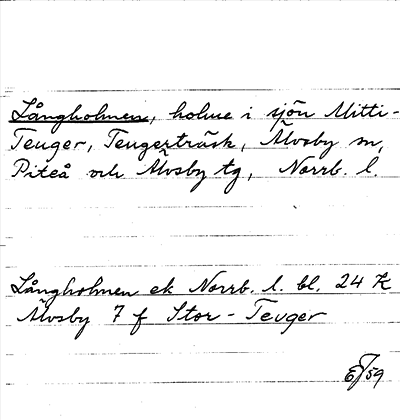 Långholmen, holme i sjön Mitti-
Teuger, Teugerträsk, Älvsby sn,
Piteå och Älvsby tg, Norrb. l.
Långholmen ek Norrb. l. bl. 24 K
Älvsby 7 f Stor-Teuger